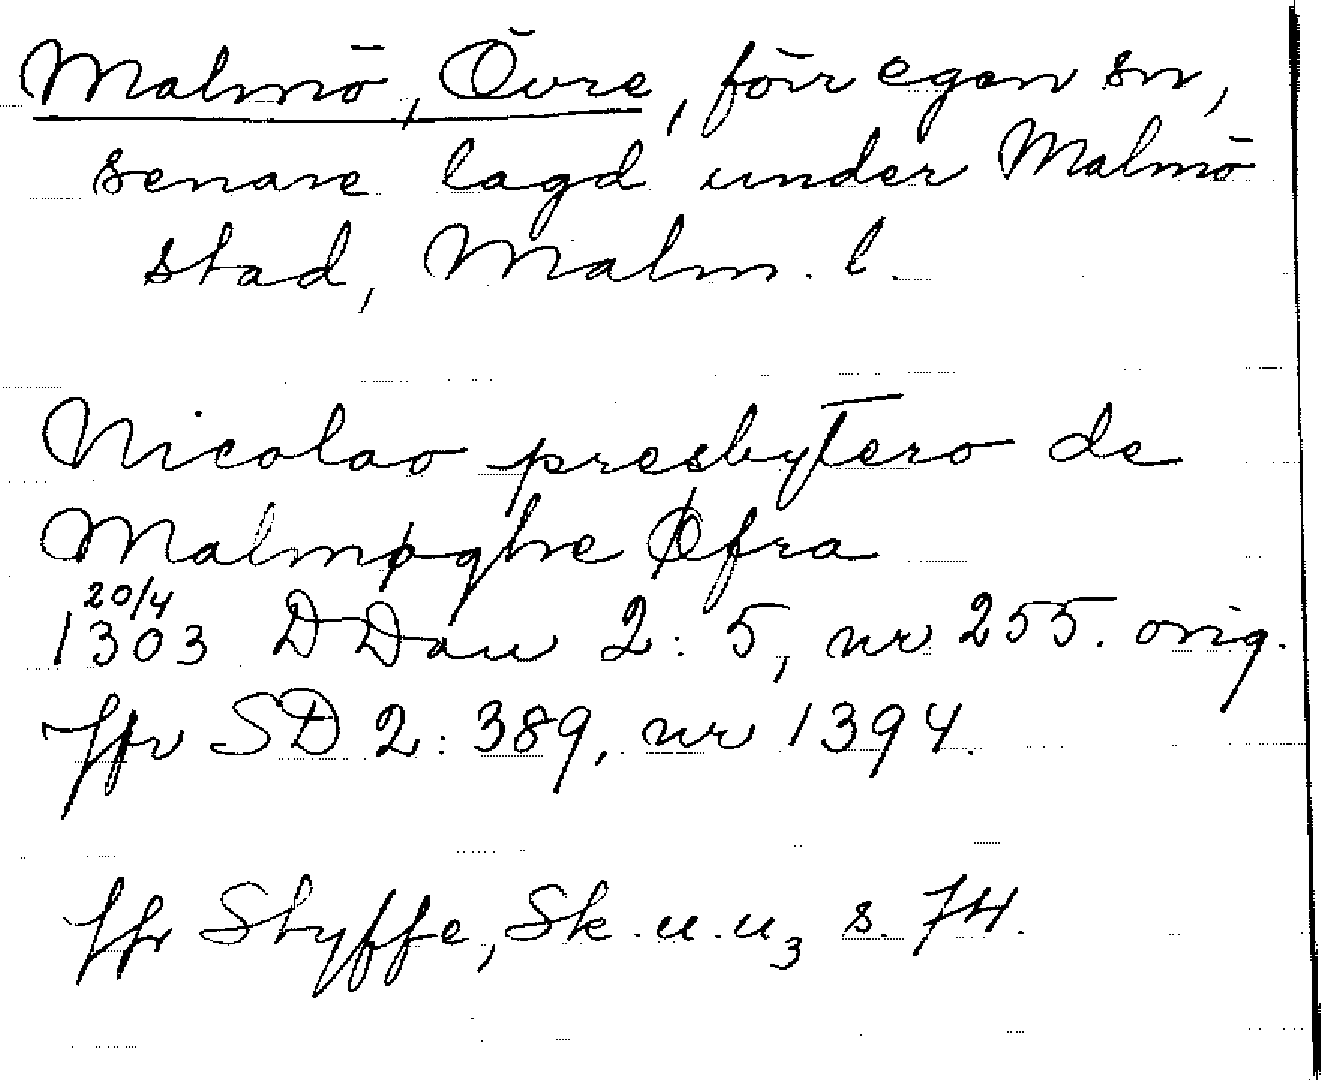 Malmö, Övre, förr egen sn,
senare lagd under Malmö
stad, Malm. l.
Nicolao presbytero de
Malmøghe Øfra
20/4
1303 DDan 2: 5, nr 255. orig.
Jfr SD 2: 389, nr 1394.
Jfr Styffe, Sk. u. u3 s. 74.